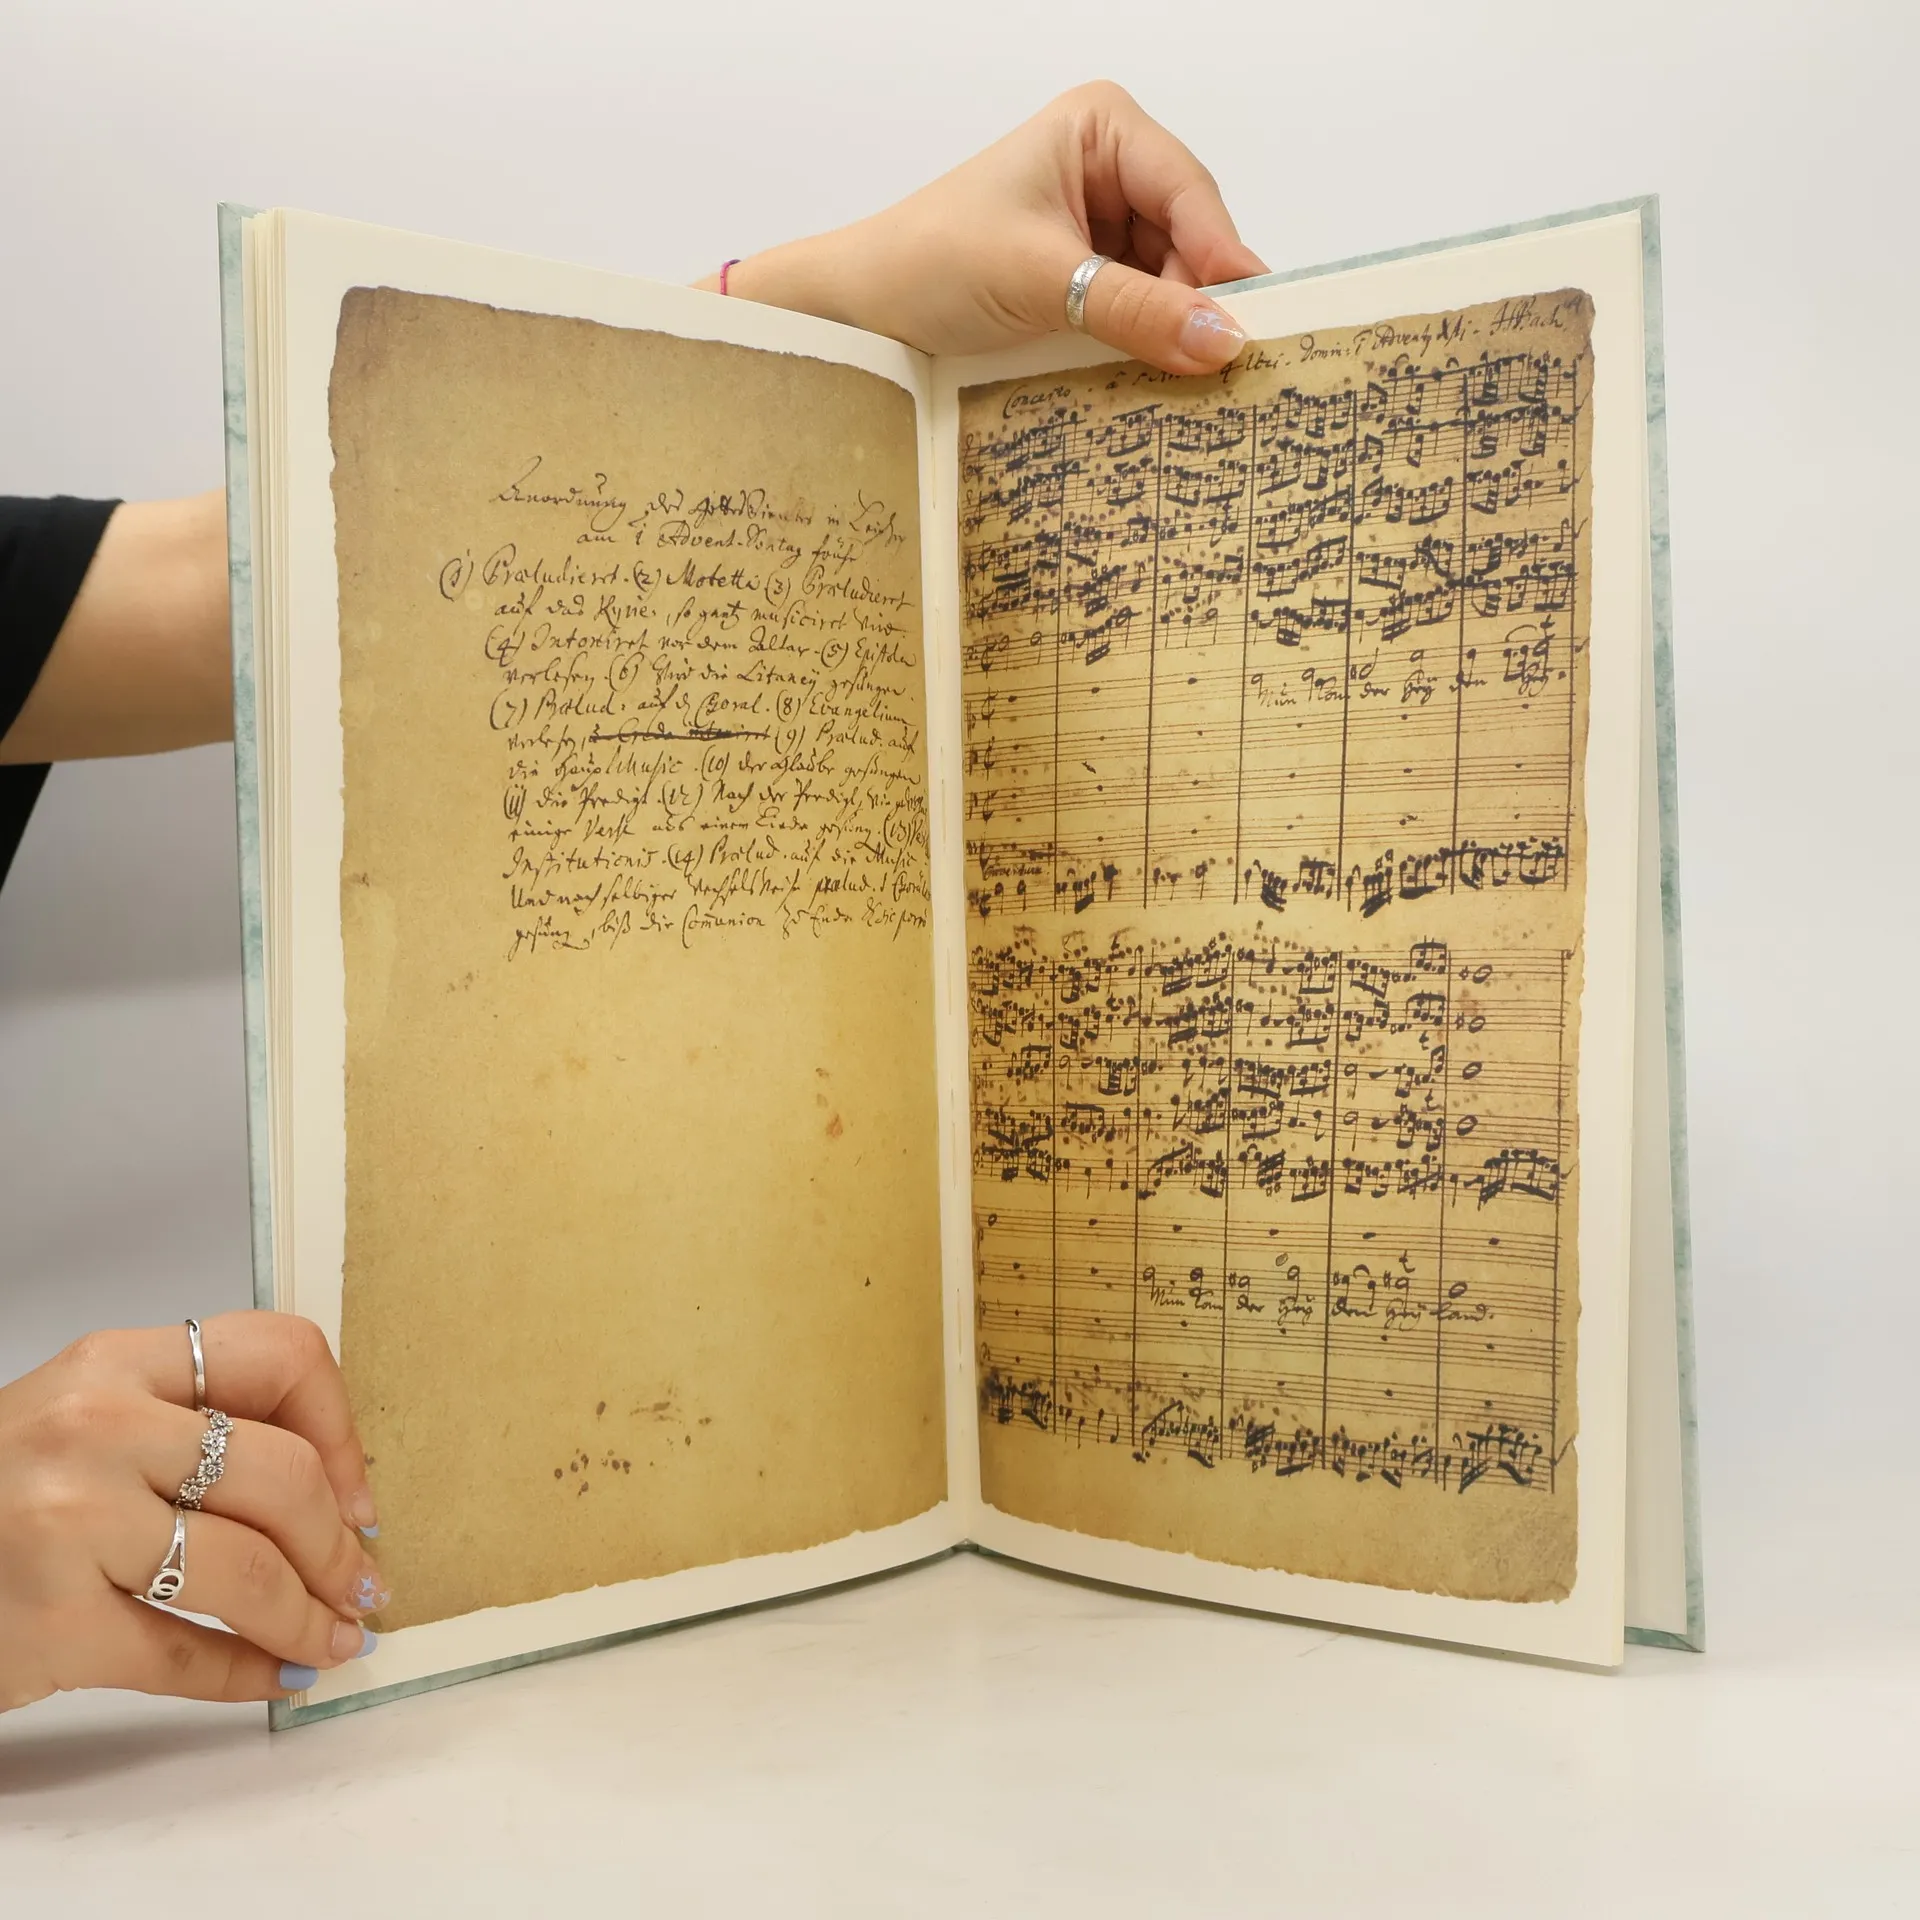 Anordnung des GottesDienstes in Leipzig
am 1 Advent-Sontag frühe
(1) Præludieret. (2) Motetta (3) Præludieret
auf das Kyrie, so gantz musiciret wird.
(4) Intoniret vor dem Altar. (5) Epistola
verlesen. (6) Wird die Litaney gesungen.
(7) Prælud: auf den Choral. (8) Evangelium
verlesen, u. Credo intoniret (9) Prælud. auf
die HauptMusic. (10) der Glaube gesungen
(11) die Predigt. (12) Nach der Predigt, wie
einige Verse aus einem Liede gesung. (13) Verba
Institutionis. (14) Prælud. auf die Music.
Und nach selbiger wechselsweise prælud. v Choräle
gesung, biß die Com̄union zu Ende & sic porrò
Concerto. à 4 Voci. Domin: 1 Adventꝰ Xsti. JSBach
Nun kom der Hey den Hey-
Nun kom der Hey den Hey land.